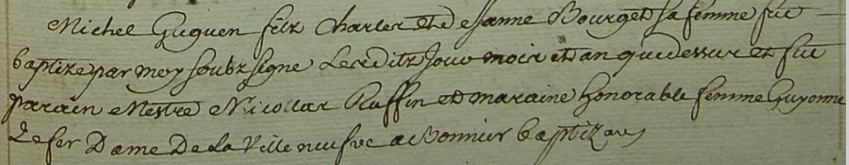 Michel Guguen filz Charles et de Janne Bourget sa femme fut
baptize par moy soubz signe lesditz jour mois et an que dessus et fut
parain Mestre Nicollas Ruffin et maraine honorable femme Guyonne
Le fer Dame De La Ville neufve a Bonnier baptizay